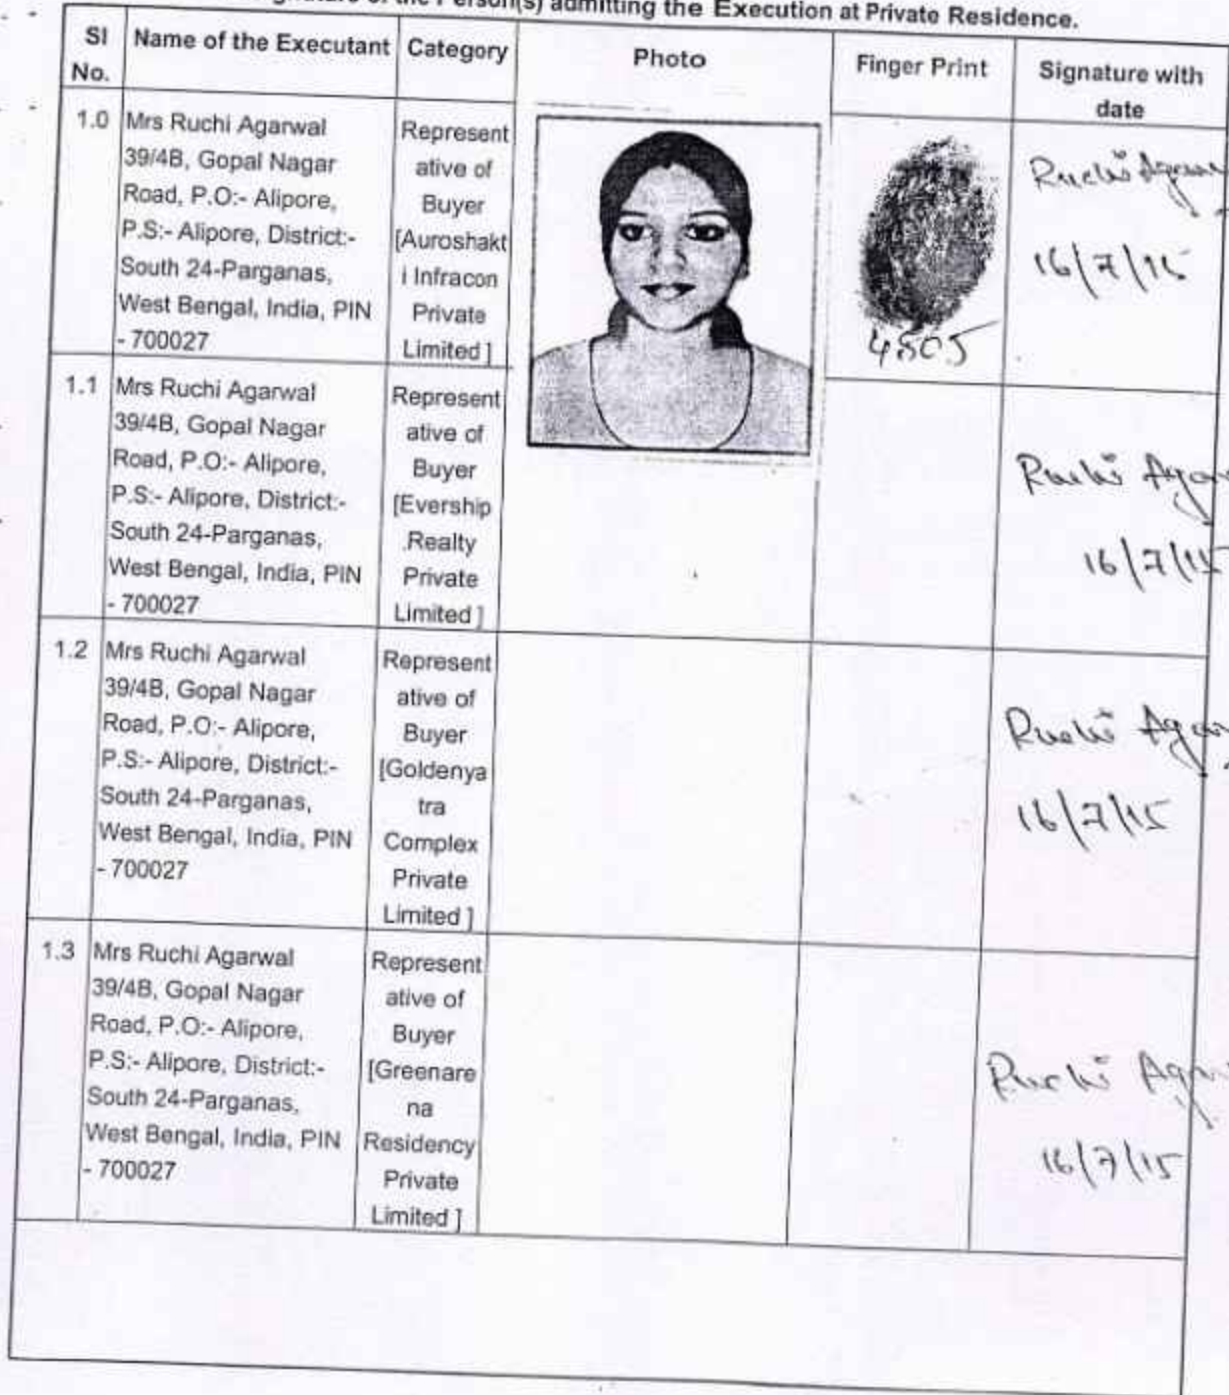 of the Person(s) admitting the Execution at Private Residence.
Sl No.
Name of the Executant
Category
Photo
Finger Print
Signature with date
1.0
Mrs Ruchi Agarwal
39/4B, Gopal Nagar
Road, P.O:- Alipore,
P.S:- Alipore, District:-
South 24-Parganas,
West Bengal, India, PIN
- 700027
Represent
ative of
Buyer
[Auroshakt
i Infracon
Private
Limited ]
4505
Ruchi Agarw
16/7/15
1.1
Mrs Ruchi Agarwal
39/4B, Gopal Nagar
Road, P.O:- Alipore,
P.S:- Alipore, District:-
South 24-Parganas,
West Bengal, India, PIN
- 700027
Represent
ative of
Buyer
[Evership
Realty
Private
Limited ]
Ruchi Agar
16/7/15
1.2
Mrs Ruchi Agarwal
39/4B, Gopal Nagar
Road, P.O:- Alipore,
P.S:- Alipore, District:-
South 24-Parganas,
West Bengal, India, PIN
- 700027
Represent
ative of
Buyer
[Goldenya
tra
Complex
Private
Limited ]
Ruchi Agar
16/7/15
1.3
Mrs Ruchi Agarwal
39/4B, Gopal Nagar
Road, P.O:- Alipore,
P.S:- Alipore, District:-
South 24-Parganas,
West Bengal, India, PIN
- 700027
Represent
ative of
Buyer
[Greenare
na
Residency
Private
Limited ]
Ruchi Agar
16/7/15